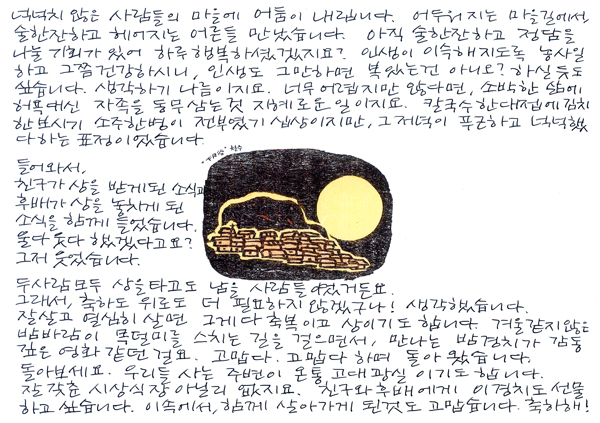 넉넉치 않은 사람들의 마을에 어둠이 내립니다. 어두워지는 마을길에서,
술한잔하고 헤어지는 어른들 만났습니다. 아직 술한잔하고 정담을
나눌 기회가 있어 하루 행복하셨겠지요? 인생이 이슥해지도록 농사일
하고 그쯤 건강하시니, 인생도 그만하면 복있는건 아니요? 하실듯도
싶습니다. 생각하기 나름이지요. 너무 어렵지만 않다면, 소박한 삶에
허욕대신 자족을 동무삼는것 지혜로운 일이지요. 칼국수 한 대접에 김치
한보시기 소주한병이 전부였기 십상이지만, 그저녁이 푸근하고 넉넉했
다하는 표정이었습니다.
들어와서,
친구가 상을 받게된 소식과
후배가 상을 놓치게 된
소식을 함께 들었습니다.
울다 웃다 했겠다고요?
그저 웃었습니다.
철수
두사람 모두 상을 타고도 남을 사람들이었거든요.
그래서, 축하도 위로도 더 필요하지 않겠구나! 생각했습니다.
잘살고 열심히 살면 그게 다 축복이고 상이기도 합니다. 겨울같지않은
밤바람이 목덜미를 스치는 길을 걸으면서, 만나는 밤경치가 감동
깊은 영화 같던 걸요. 고맙다. 고맙다 하며 돌아 왔습니다.
돌아보세요. 우리들 사는 주변이 온통 고대광실 이기도 합니다.
잘 갖춘 시상식장 아닐리 없지요. 친구와 후배에게 이경치도 선물
하고 싶습니다. 이속에서, 함께 살아가게 된것도 고맙습니다. 축하해!